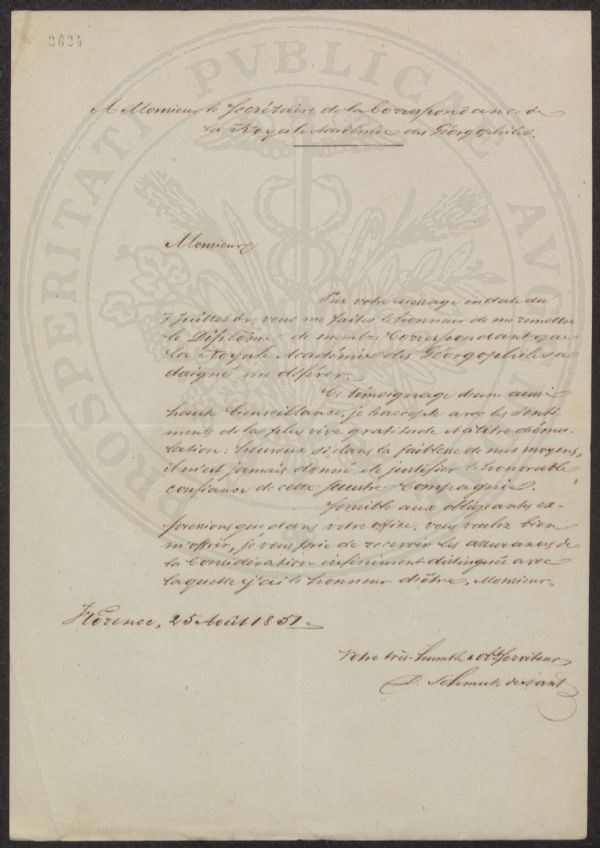 8624
PROSPERITATI PVBLICAE AVGENDAE
A Monsieur le Secrétaire de la Correspondance de
la Royale Académie des Géorgophiles.
Monsieur,
Par votre message en date du
7 Juillet dr, vous me faites le honneur de me remettre
le Diplôme de membre Correspondant que
la Royale Académie des Géorgophiles a
daigné me déférer.
Ce Témoignage d'une aussi
haute bienveillance, je l'accepte avec les senti
ments de la plus vive gratitude et à titre d'ému-
lation: heureux si, dans la faiblesse de mes moyens,
il m'est jamais donné de justifier le honorable
confiance de cette Illustre Compagnie.
Sensible aux obligeants ex-
pressions que dans votre office, vous voulez bien
m'offrir, je vous prie de recevoir les assurances de
la Considération infiniment distinguée avec
laquelle j'ai le honneur d'être, Monsieur,
Florence, 25 Août 1851
Votre très-humble & obt Serviteur
Schmuts